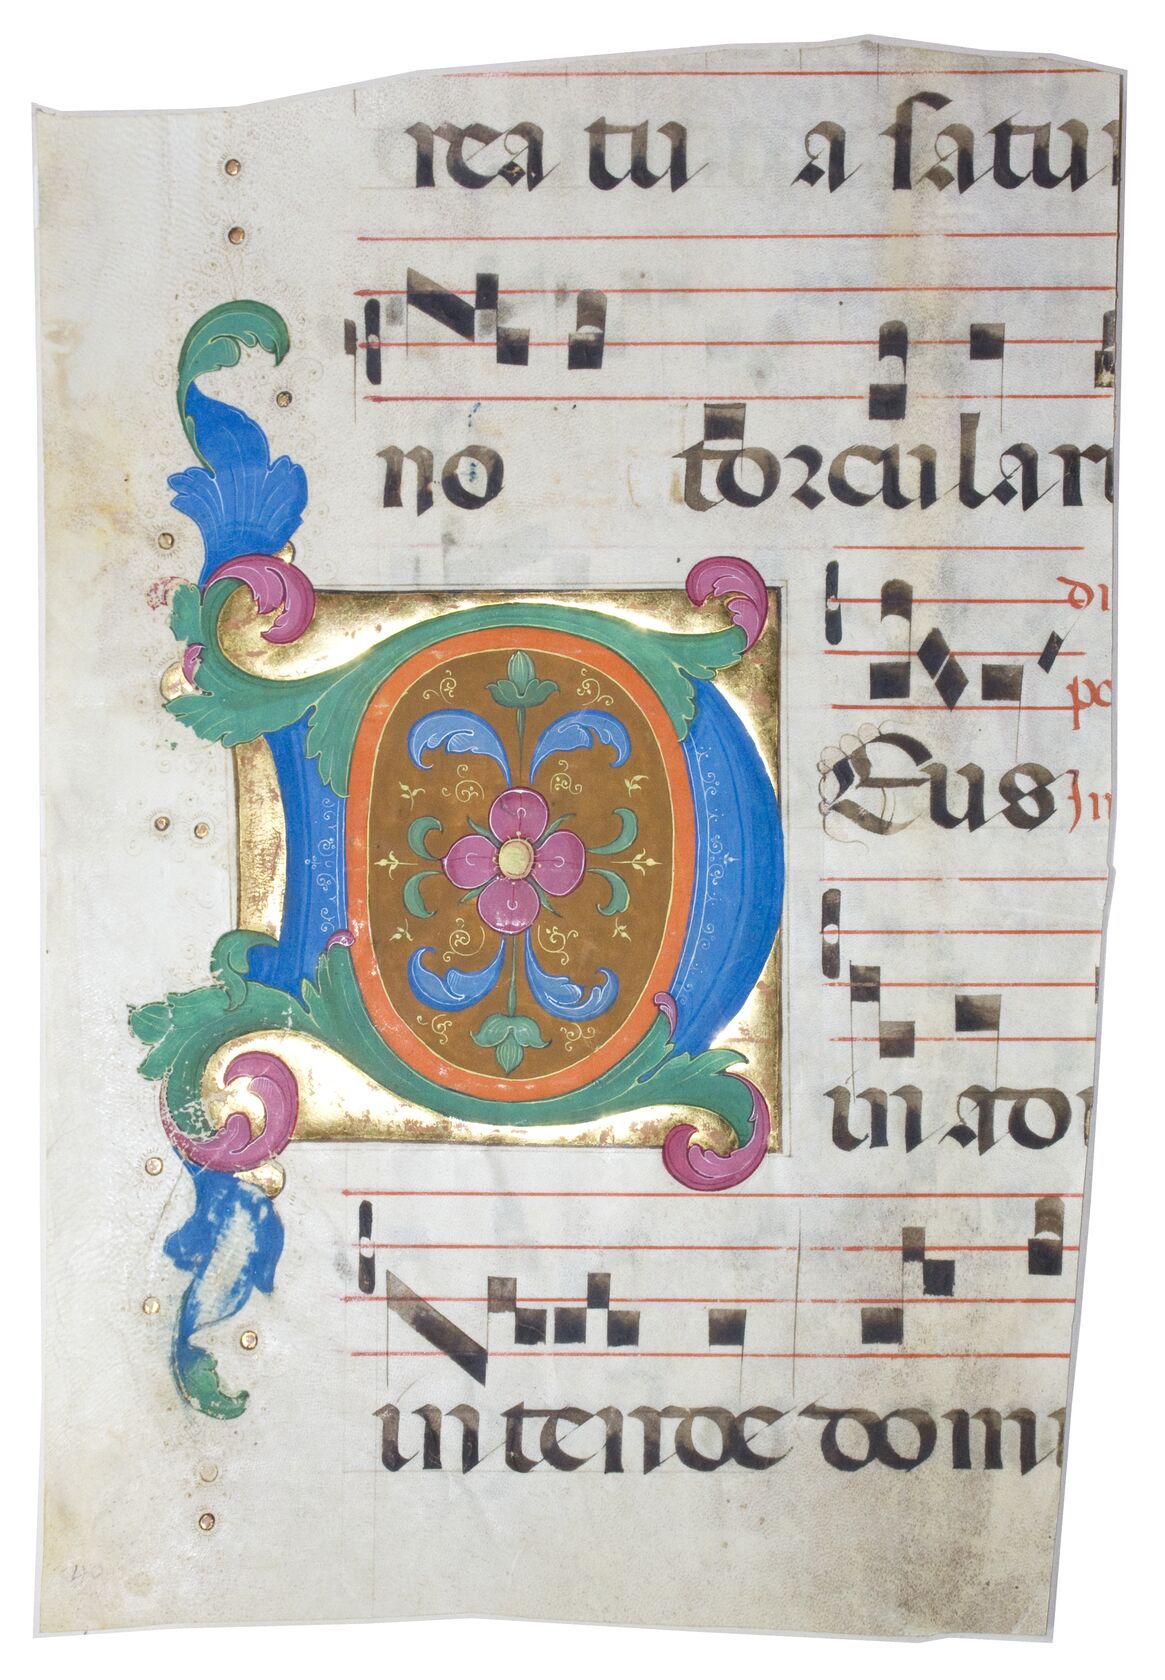 rea tu a satu
no torcular
di
po
Deus In
in adi
intende domi